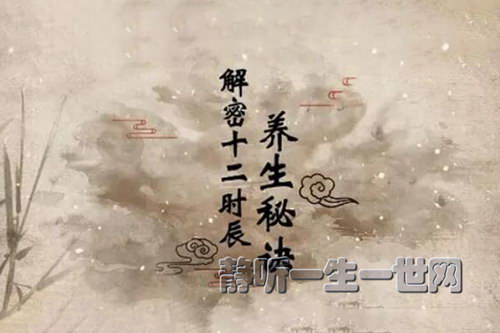 解密十二时辰
养生秘诀
静听一生一世网